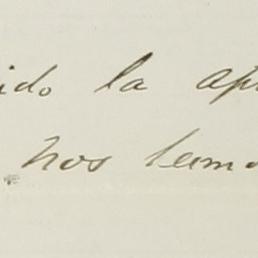 ido la ap
nos tamo